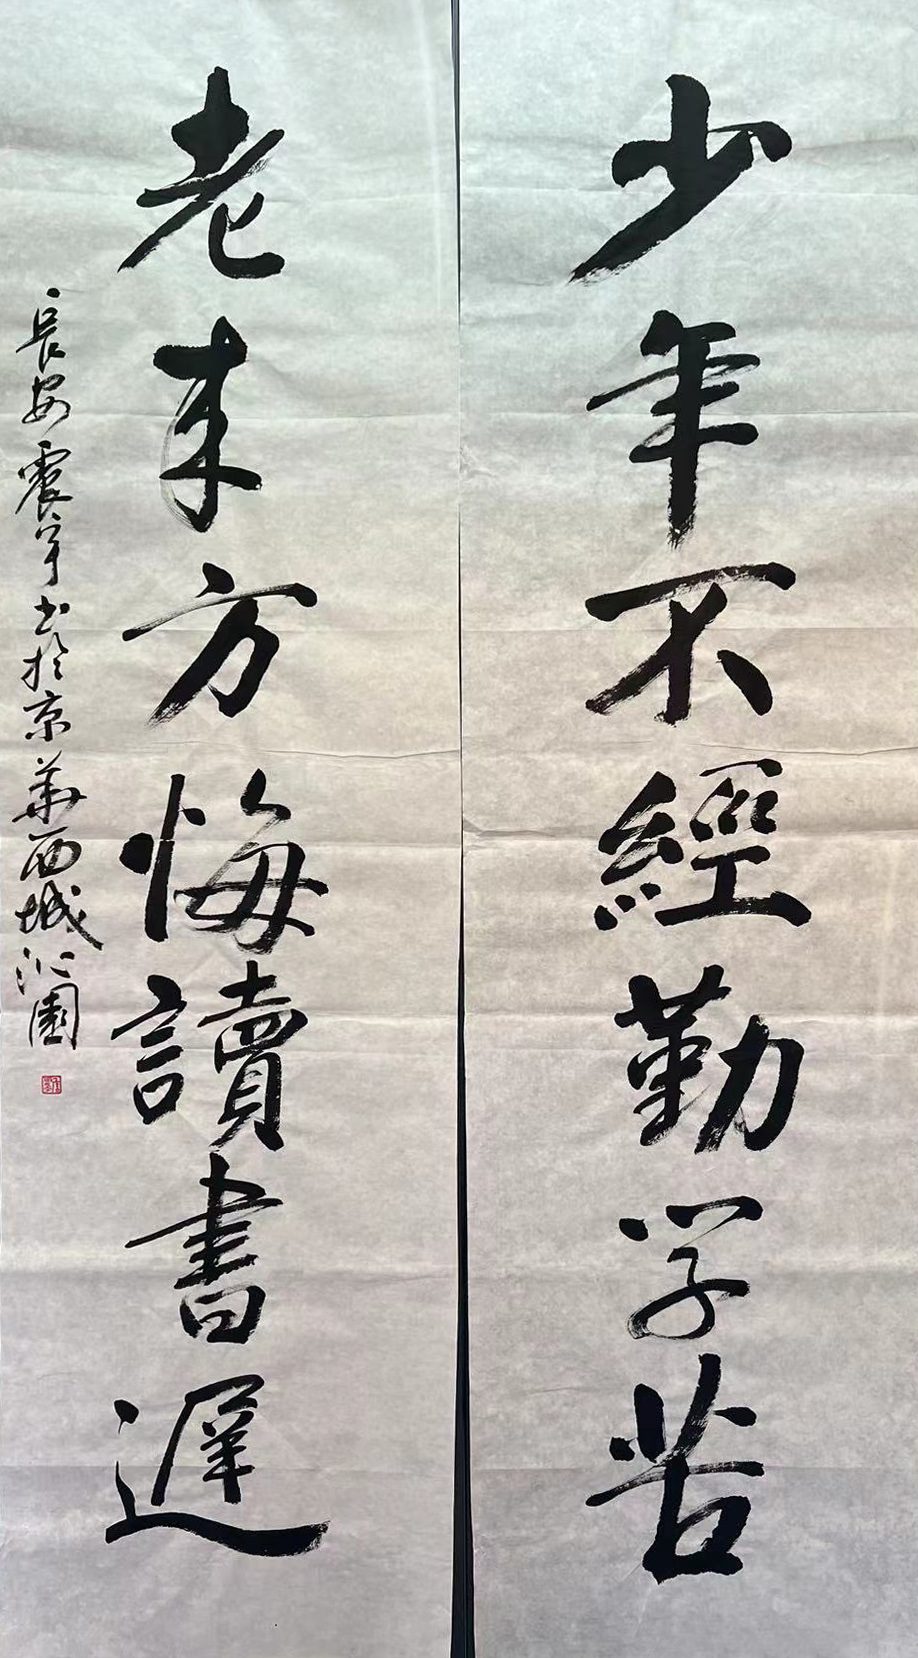 少年不經勤学苦
老来方悔讀書遲
長安震宇书於京華西城沁園